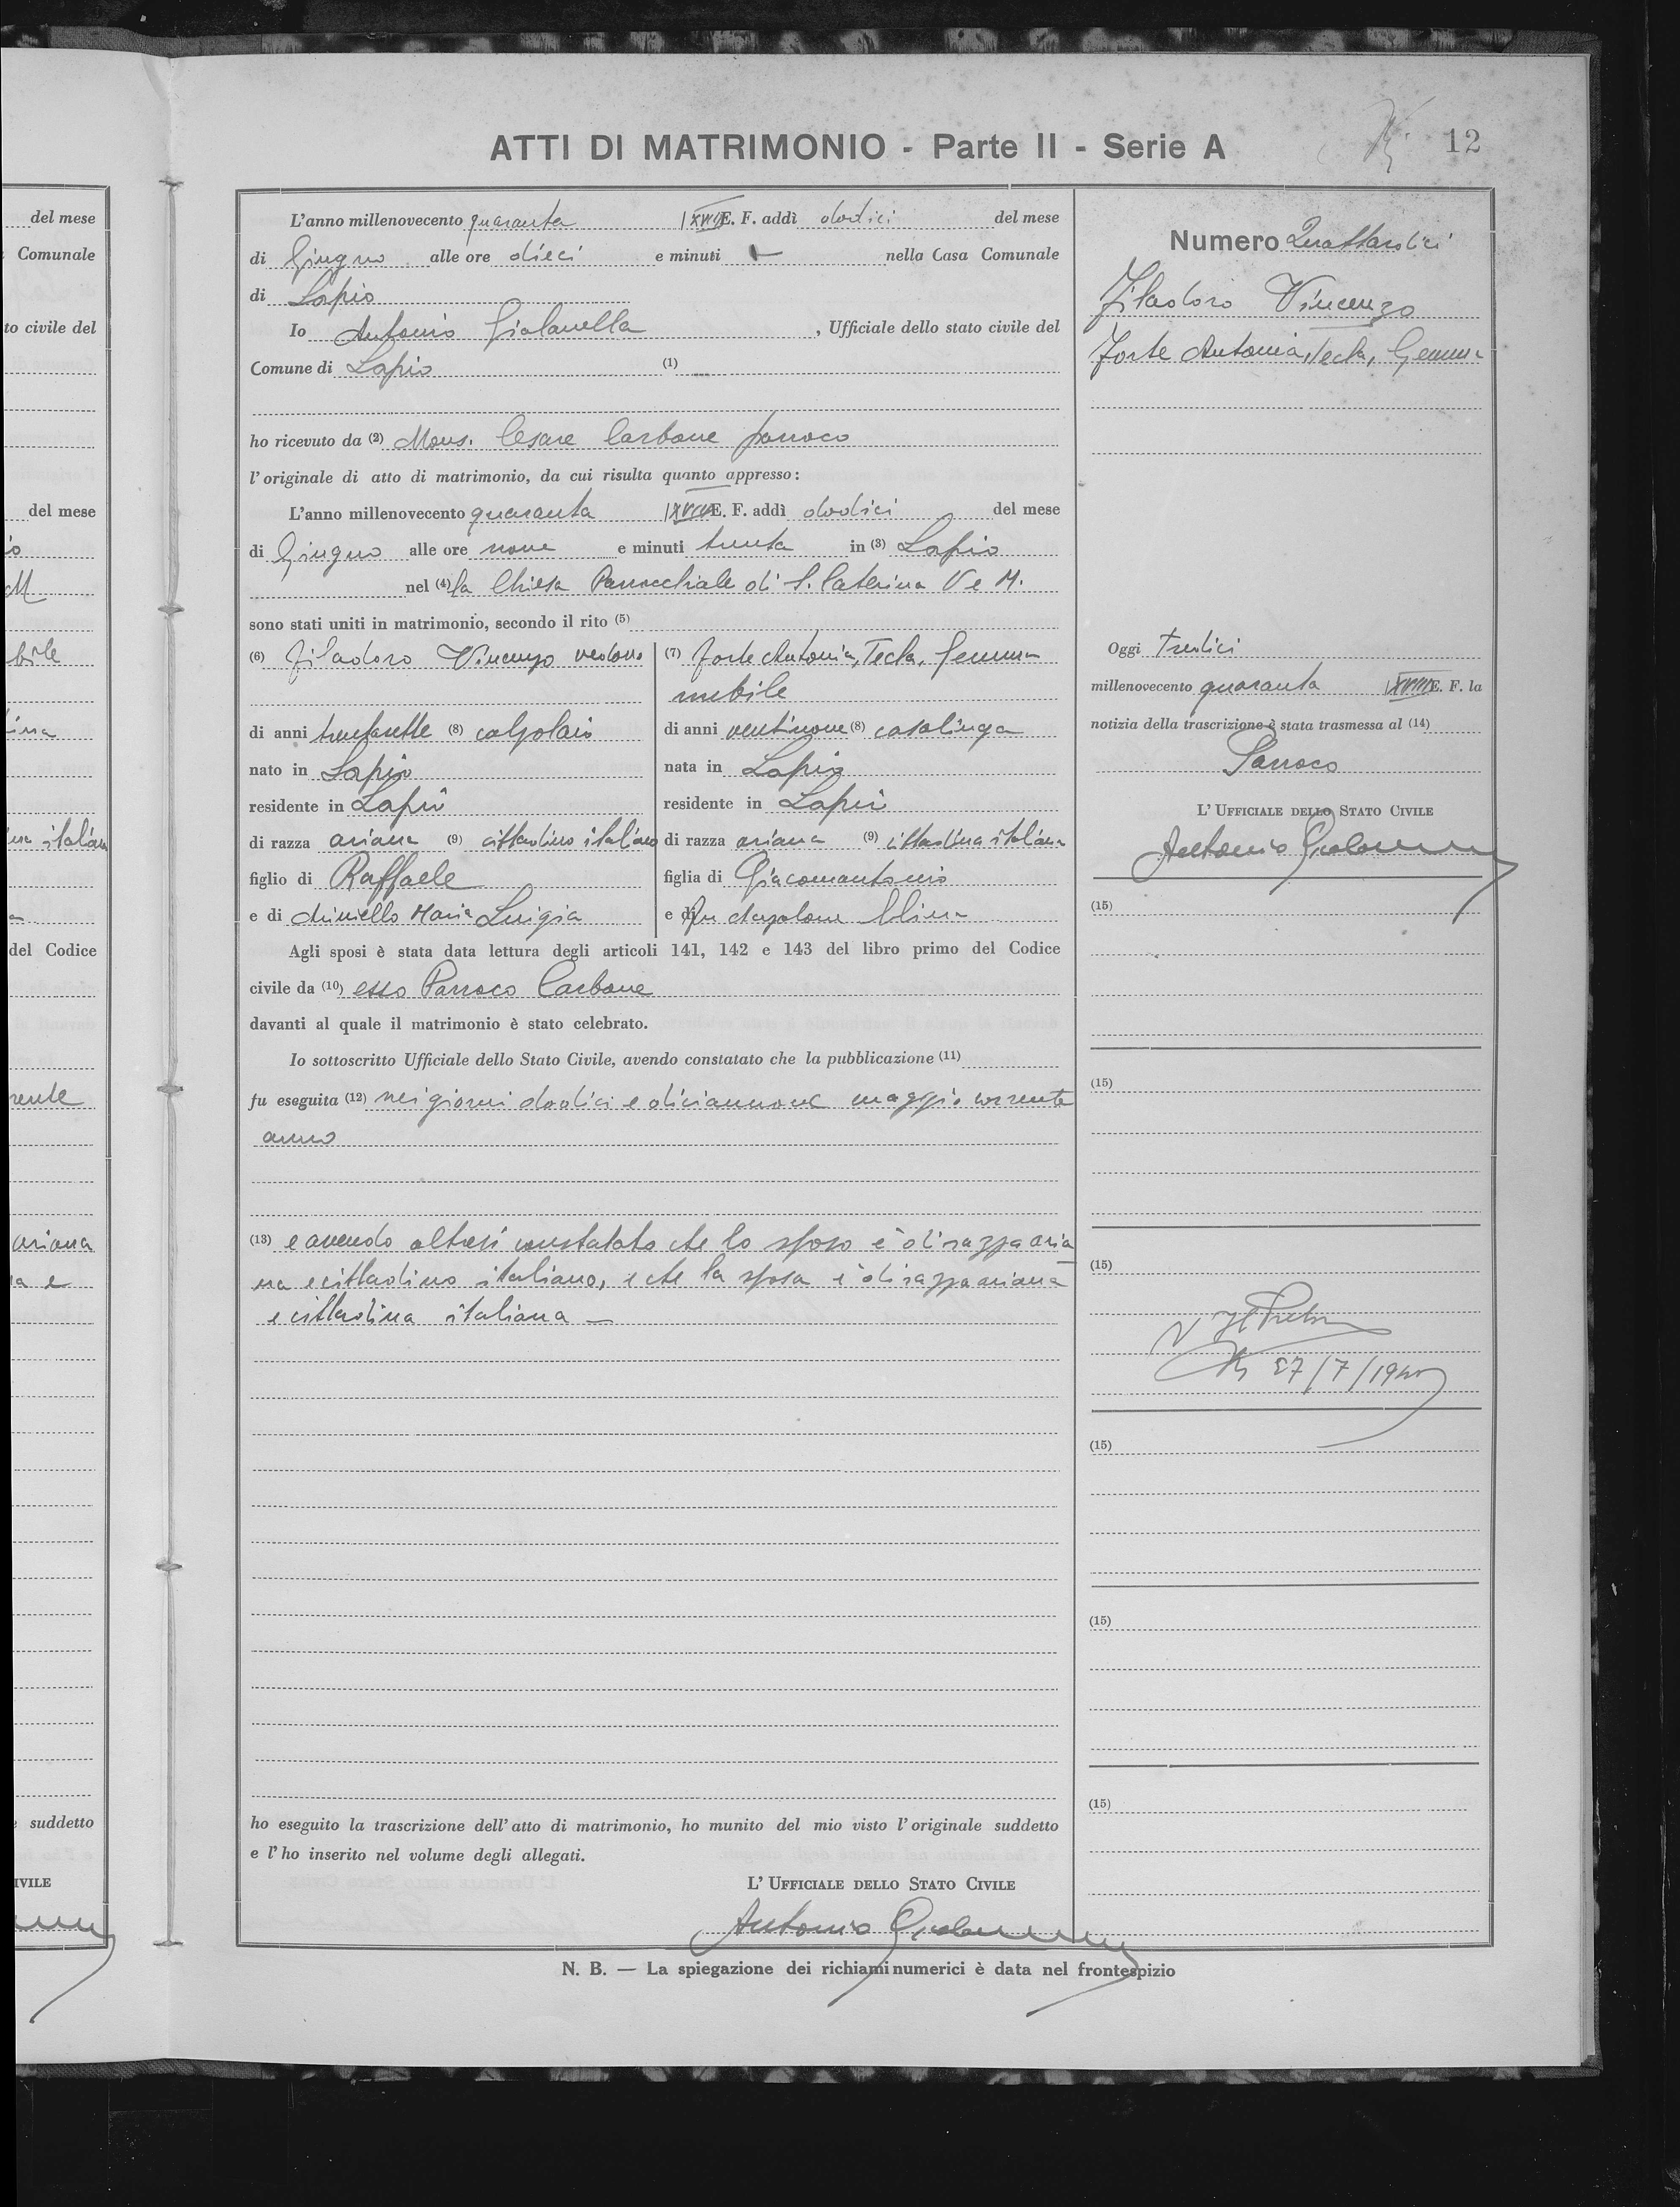 del mese
Comunale
to civile del
del mese
bile
ina
ina italiana
del Codice
rente
ariana
ia e
suddetto
IVILE
ATTI DI MATRIMONIO - Parte II - Serie A
12
L'anno millenovecento quaranta XVIII E. F. addì dodici del mese
di Giugno alle ore dieci e minuti — nella Casa Comunale
di Lapio
Io Antonio Gialanella, Ufficiale dello stato civile del
Comune di Lapio (1)
ho ricevuto da (2) Mons. Cesare Carbone parroco
l'originale di atto di matrimonio, da cui risulta quanto appresso:
L'anno millenovecento quaranta XVIII E. F. addì dodici del mese
di Giugno alle ore nove e minuti trenta in (3) Lapio
nel (4) la Chiesa Parrocchiale di S. Caterina V e M.
sono stati uniti in matrimonio, secondo il rito (5)
(6) Filadoro Vincenzo vedovo
di anni trentasette (8) calzolaio
nato in Lapio
residente in Lapio
di razza ariana (9) cittadino italiano
figlio di Raffaele
e di Miniello Maria Luigia
(7) Forte Antonia, Tecla, Gemma
nubile
di anni ventinove (8) casalinga
nata in Lapio
residente in Lapio
di razza ariana (9) cittadina italiana
figlia di Giacomantonio
e di fu
Agli sposi è stata data lettura degli articoli 141, 142 e 143 del libro primo del Codice
civile da (10) esso Parroco Carbone
davanti al quale il matrimonio è stato celebrato.
Io sottoscritto Ufficiale dello Stato Civile, avendo constatato che la pubblicazione (11)
fu eseguita (12) nei giorni dodici e diciannove maggio corrente
anno
(13) e avendo altresì constatato che lo sposo è di razza aria
na e cittadino italiano, e che la sposa è di razza ariana
e cittadina italiana —
ho eseguito la trascrizione dell'atto di matrimonio, ho munito del mio visto l'originale suddetto
e l'ho inserito nel volume degli allegati.
L'UFFICIALE DELLO STATO CIVILE
Antonio Gialanella
Numero Quattordici
Filadoro Vincenzo
Forte Antonia, Tecla, Gemma
Oggi tredici
millenovecento quaranta XVIII E. F. la
notizia della trascrizione è stata trasmessa al (14)
Parroco
L'UFFICIALE DELLO STATO CIVILE
Antonio Gialanella
(15)
(15)
(15)
V. Il Pretore
27/7/1940
(15)
(15)
(15)
N. B. — La spiegazione dei richiami numerici è data nel frontespizio